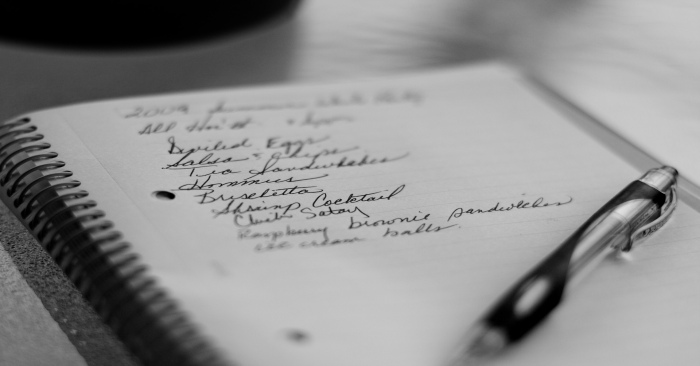 2009 Summer White Party
All
Deviled Eggs
Salsa & Chips
Tea Sandwiches
Hommus
Bruschetta
Shrimp Cocktail
Satay
Raspberry brownie sandwiches
ice cream balls